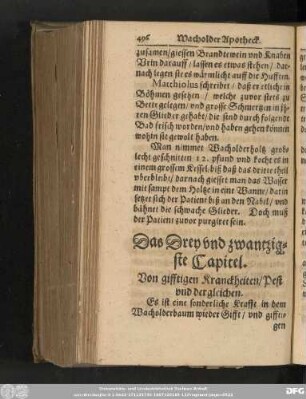 496 Wacholder Apotheck.
zusamen/giessen Brandtewein vnd Knaben
Vrin darauff/ lassen es etwas stehen/ dar-
nach legen sie es wärmlicht auff die Hufften.
Matthiolus schreibet/ daß er etliche in
Böhmen gesehen/ welche zuvor stets zu
Bette gelegen/ vnd grosse Schmertzen in jh-
ren Glieder gehabt/ die sind durch folgende
Bad frisch worden/ vnd haben gehen können
wohin sie gewolt haben.
Man nimmet Wacholderholtz grob-
lecht geschnitten 12. pfund vnd kocht es in
einem grossem Kessel/ biß daß das dritte theil
vberbleibt/ darnach giesset man das Wasser
mit sampt dem Holtze in eine Wanne/ darin
setzet sich der Patient biß an den Nabel/ vnd
bähnet die schwache Glieder. Doch muß
der Patient zuvor purgiret sein.
Das Drey vnd zwantzig-
ste Capitel.
Von gifftigen Kranckheiten/ Pest
vnd dergleichen.
Es ist eine sonderliche Krafft in dem
Wacholderbaum wieder Gifft/ vnd giffti-
gen